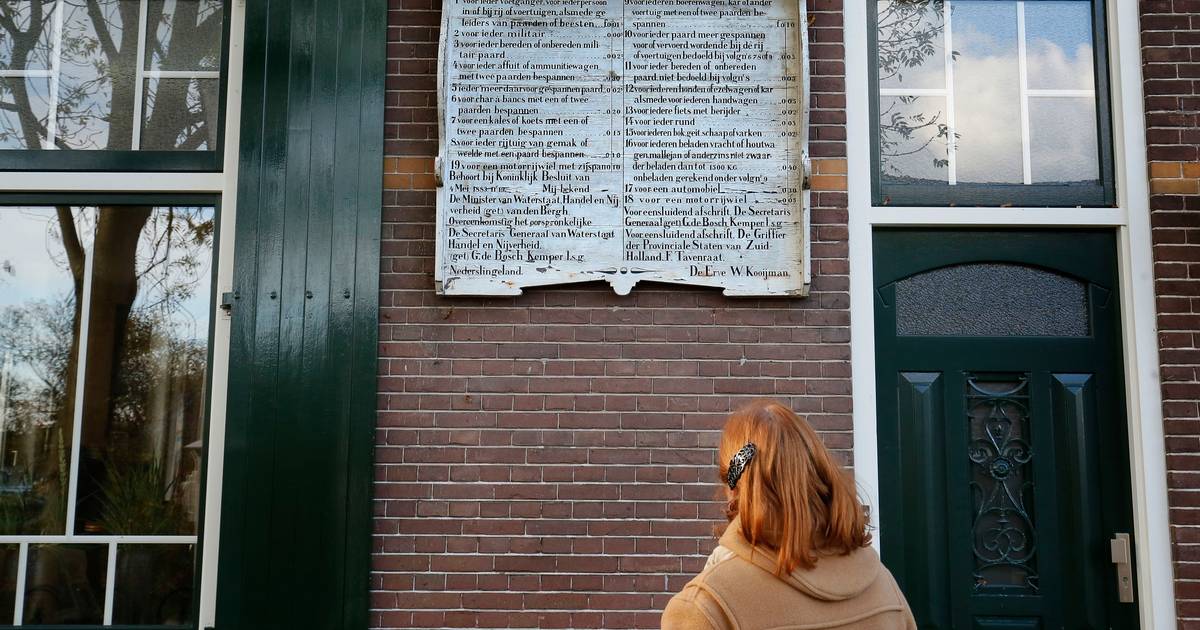 1 voor ieder voetganger, voor ieder persoon
in of bij rij of voertuigen, alsmede ge
leiders van paarden of beesten. f0.01
2 voor ieder militair
3 voor ieder bereden of onbereden mili
tair paard 0.02
4 voor ieder affuit of ammunitiewagen
met twee paarden bespannen
5 ieder meer daarvoor gespannen paard
6 voor char à bancs met een of twee
paarden bespannen 0.20
7 voor een kales of koets met een of
twee paarden bespannen 0.15
8 voor ieder rijtuig van gemak of
weelde met een paard bespannen
19 voor een motorrijwiel met zijspan
Behoort bij Koninklijk Besluit van
4 Mei Mij bekend
De Minister van Waterstaat, Handel en Nij
verheid (get) van den Bergh.
Overeenkomstig het oorspronkelijke
De Secretaris Generaal van Waterstaat
Handel en Nijverheid.
(get) G. de Bosch Kemper l.s.g.
Nederslingeland.
9 voor iederen boerenwagen, kar of ander
voertuig met een of twee paarden be
spannen f 0.10
10 voor ieder paard meer gespannen
voor of vervoerd wordende bij de rij
of voertuigen bedoeld bij volgn 6 7 8 of 9
11 voor ieder bereden of onbereden
paard niet bedoeld bij volgn
12 voor iederen honden of ezelwagen of kar
alsmede voor iederen handwagen 0.03
13 voor iedere fiets met berijder
14 voor ieder rund
15 voor iederen bok geit schaap of varken 0.02
16 voor iederen beladen vracht of houtwa
gen, mallejan of anderzins niet zwaar
der beladen dan tot 1500 KG
onbeladen gerekend onder volgn 9
17 voor een automobiel
18 voor een motorrijwiel
Voor eensluidend afschrift. De Secretaris
Generaal (get) G. de Bosch Kemper l.s.g.
Voor eensluidend afschrift. De Griffier
der Provinciale Staten van Zuid-
Holland. F. Tavenraat.
De Erve W. Kooijman.